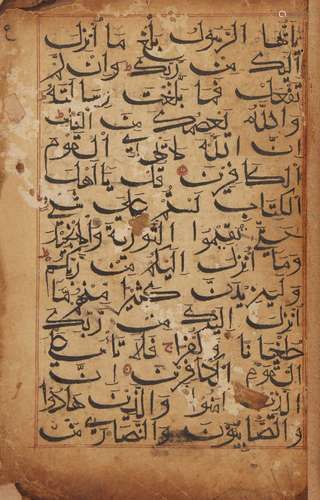 يأيها الرسول بلغ ما أنزل
إليك من ربك وإن لم
تفعل فما بلغت رسالته
والله يعصمك من الناس
إن الله لا يهدي القوم
الكافرين قل يا أهل
الكتاب لستم على شيء
حتى تقيموا التورية والإنجيل
وما أنزل إليكم من ربكم
وليزيدن كثيرا منهم ما
أنزل إليك من ربك
طغيانا وكفرا فلا تأس على
القوم الكافرين إن
الذين آمنوا والذين هادوا
والصابئون والنصارى من